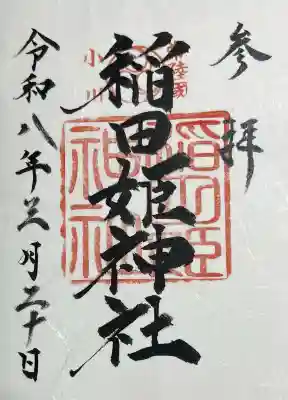 参拝
常陸國
小川
稲田姫神社
稲田姫
神社
令和八年三月二十日